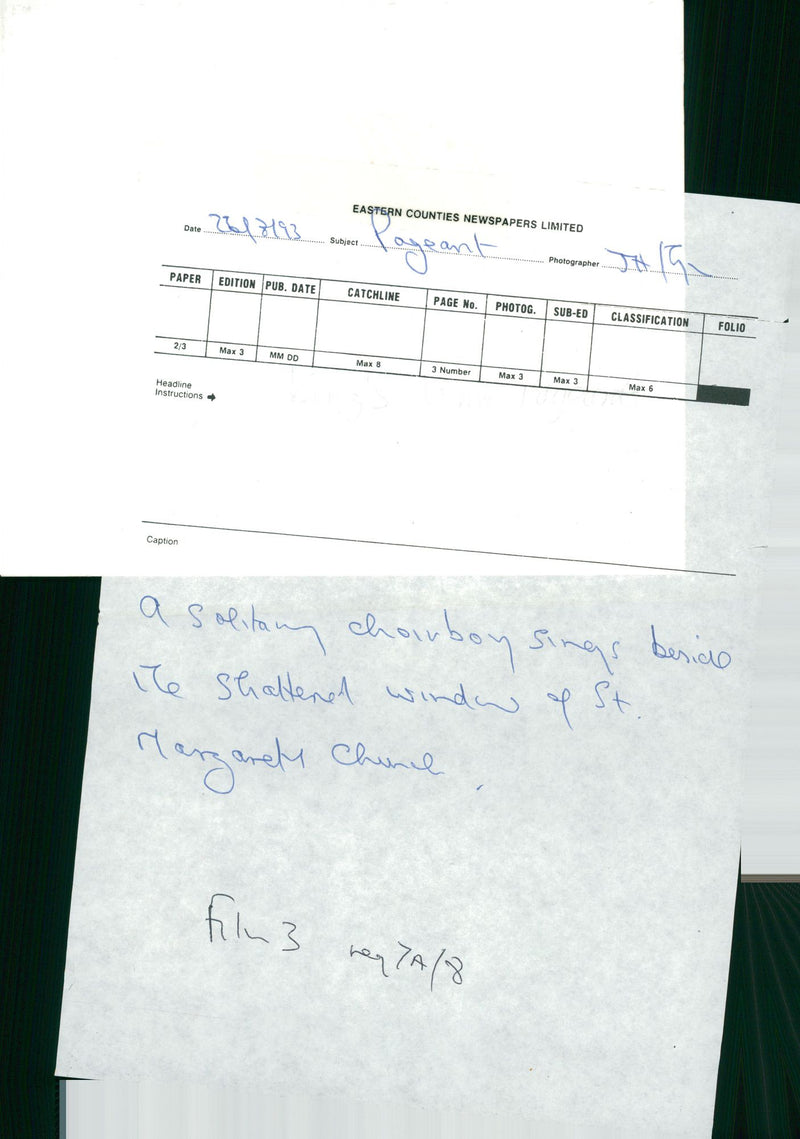 EASTERN COUNTIES NEWSPAPERS LIMITED
Date 26/7/93 Subject Pageant Photographer JH/
PAPER EDITION PUB. DATE CATCHLINE PAGE No. PHOTOG. SUB-ED CLASSIFICATION FOLIO
2/3 Max 3 MM DD Max 8 3 Number Max 3 Max 3 Max 6
Headline
Instructions
Caption
A solitary choirboy sings beside
the shattered window of St.
Margarets Church.
Film 3 neg 7A/8